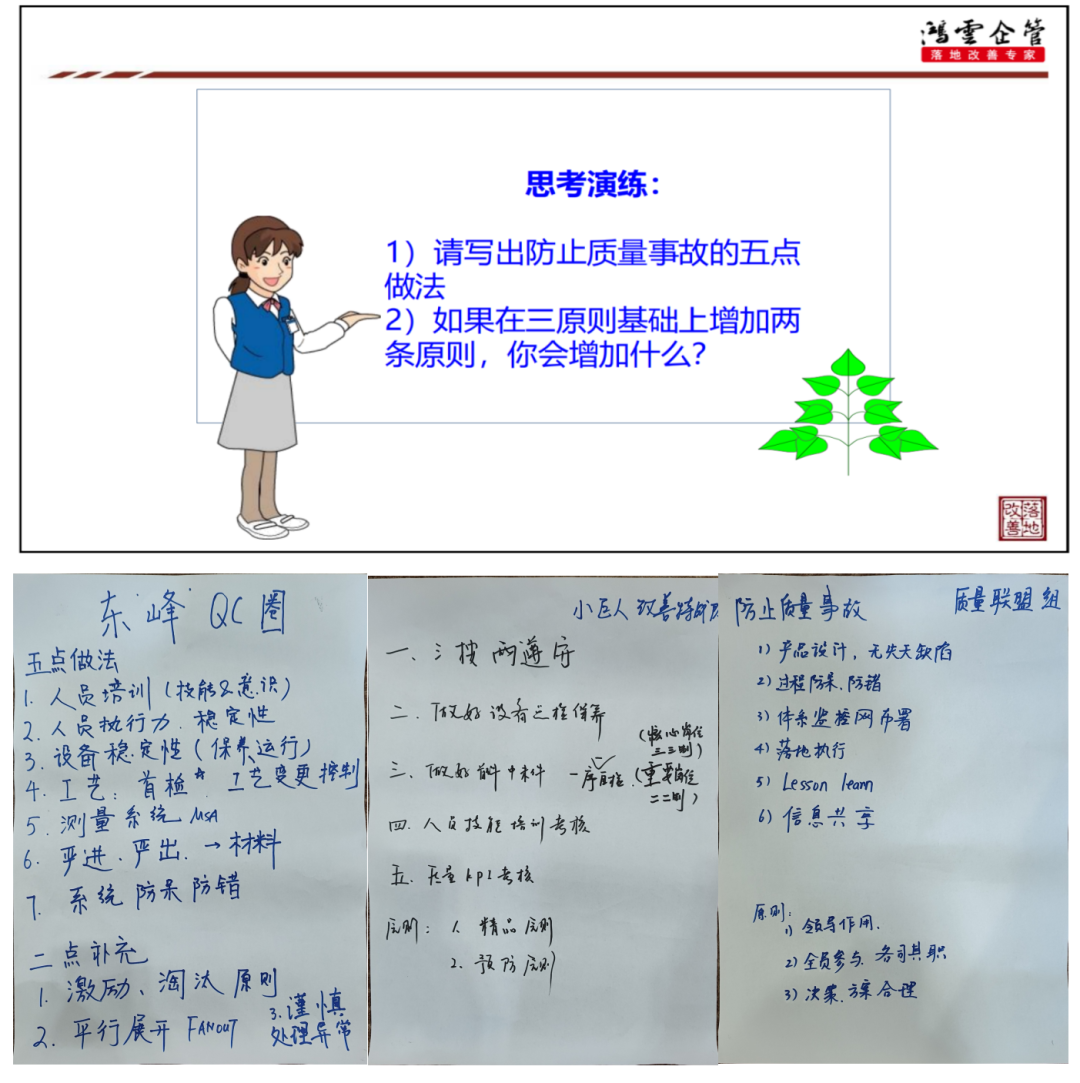 鸿雲企管
落地改善专家
思考演练：
1）请写出防止质量事故的五点
做法
2）如果在三原则基础上增加两
条原则，你会增加什么？
落地
改善
东峰 QC 圈
五点做法
1. 人员培训（技能&意识）
2. 人员执行力. 稳定性
3. 设备稳定性（保养、运行）
4. 工艺：首检* . 工艺变更控制
5. 测量系统 MSA
6. 严进、严出. → 材料
7. 系统防呆防错
二点补充
1. 激励、淘汰原则
2. 平行展开 FANOUT
3. 谨慎
处理异常
小巨人改善特
一、三按两遵守
二、做好设备三检保养
三、做好首件中末件 一序自检
（核心岗位
三三制）
（重要岗位
二二制）
四. 人员技能培训考核
五. 质量KPI考核
原则： 1. 精品原则
2. 预防原则
防止质量事故
质量联盟组
1）产品设计，无失天缺陷
2）过程防呆、防错
3）体系监控网布署
4）落地执行
5）Lesson learn
6）信息共享
原则：
1）领导作用.
2）全员参与、各司其职
3）决策、方案合理